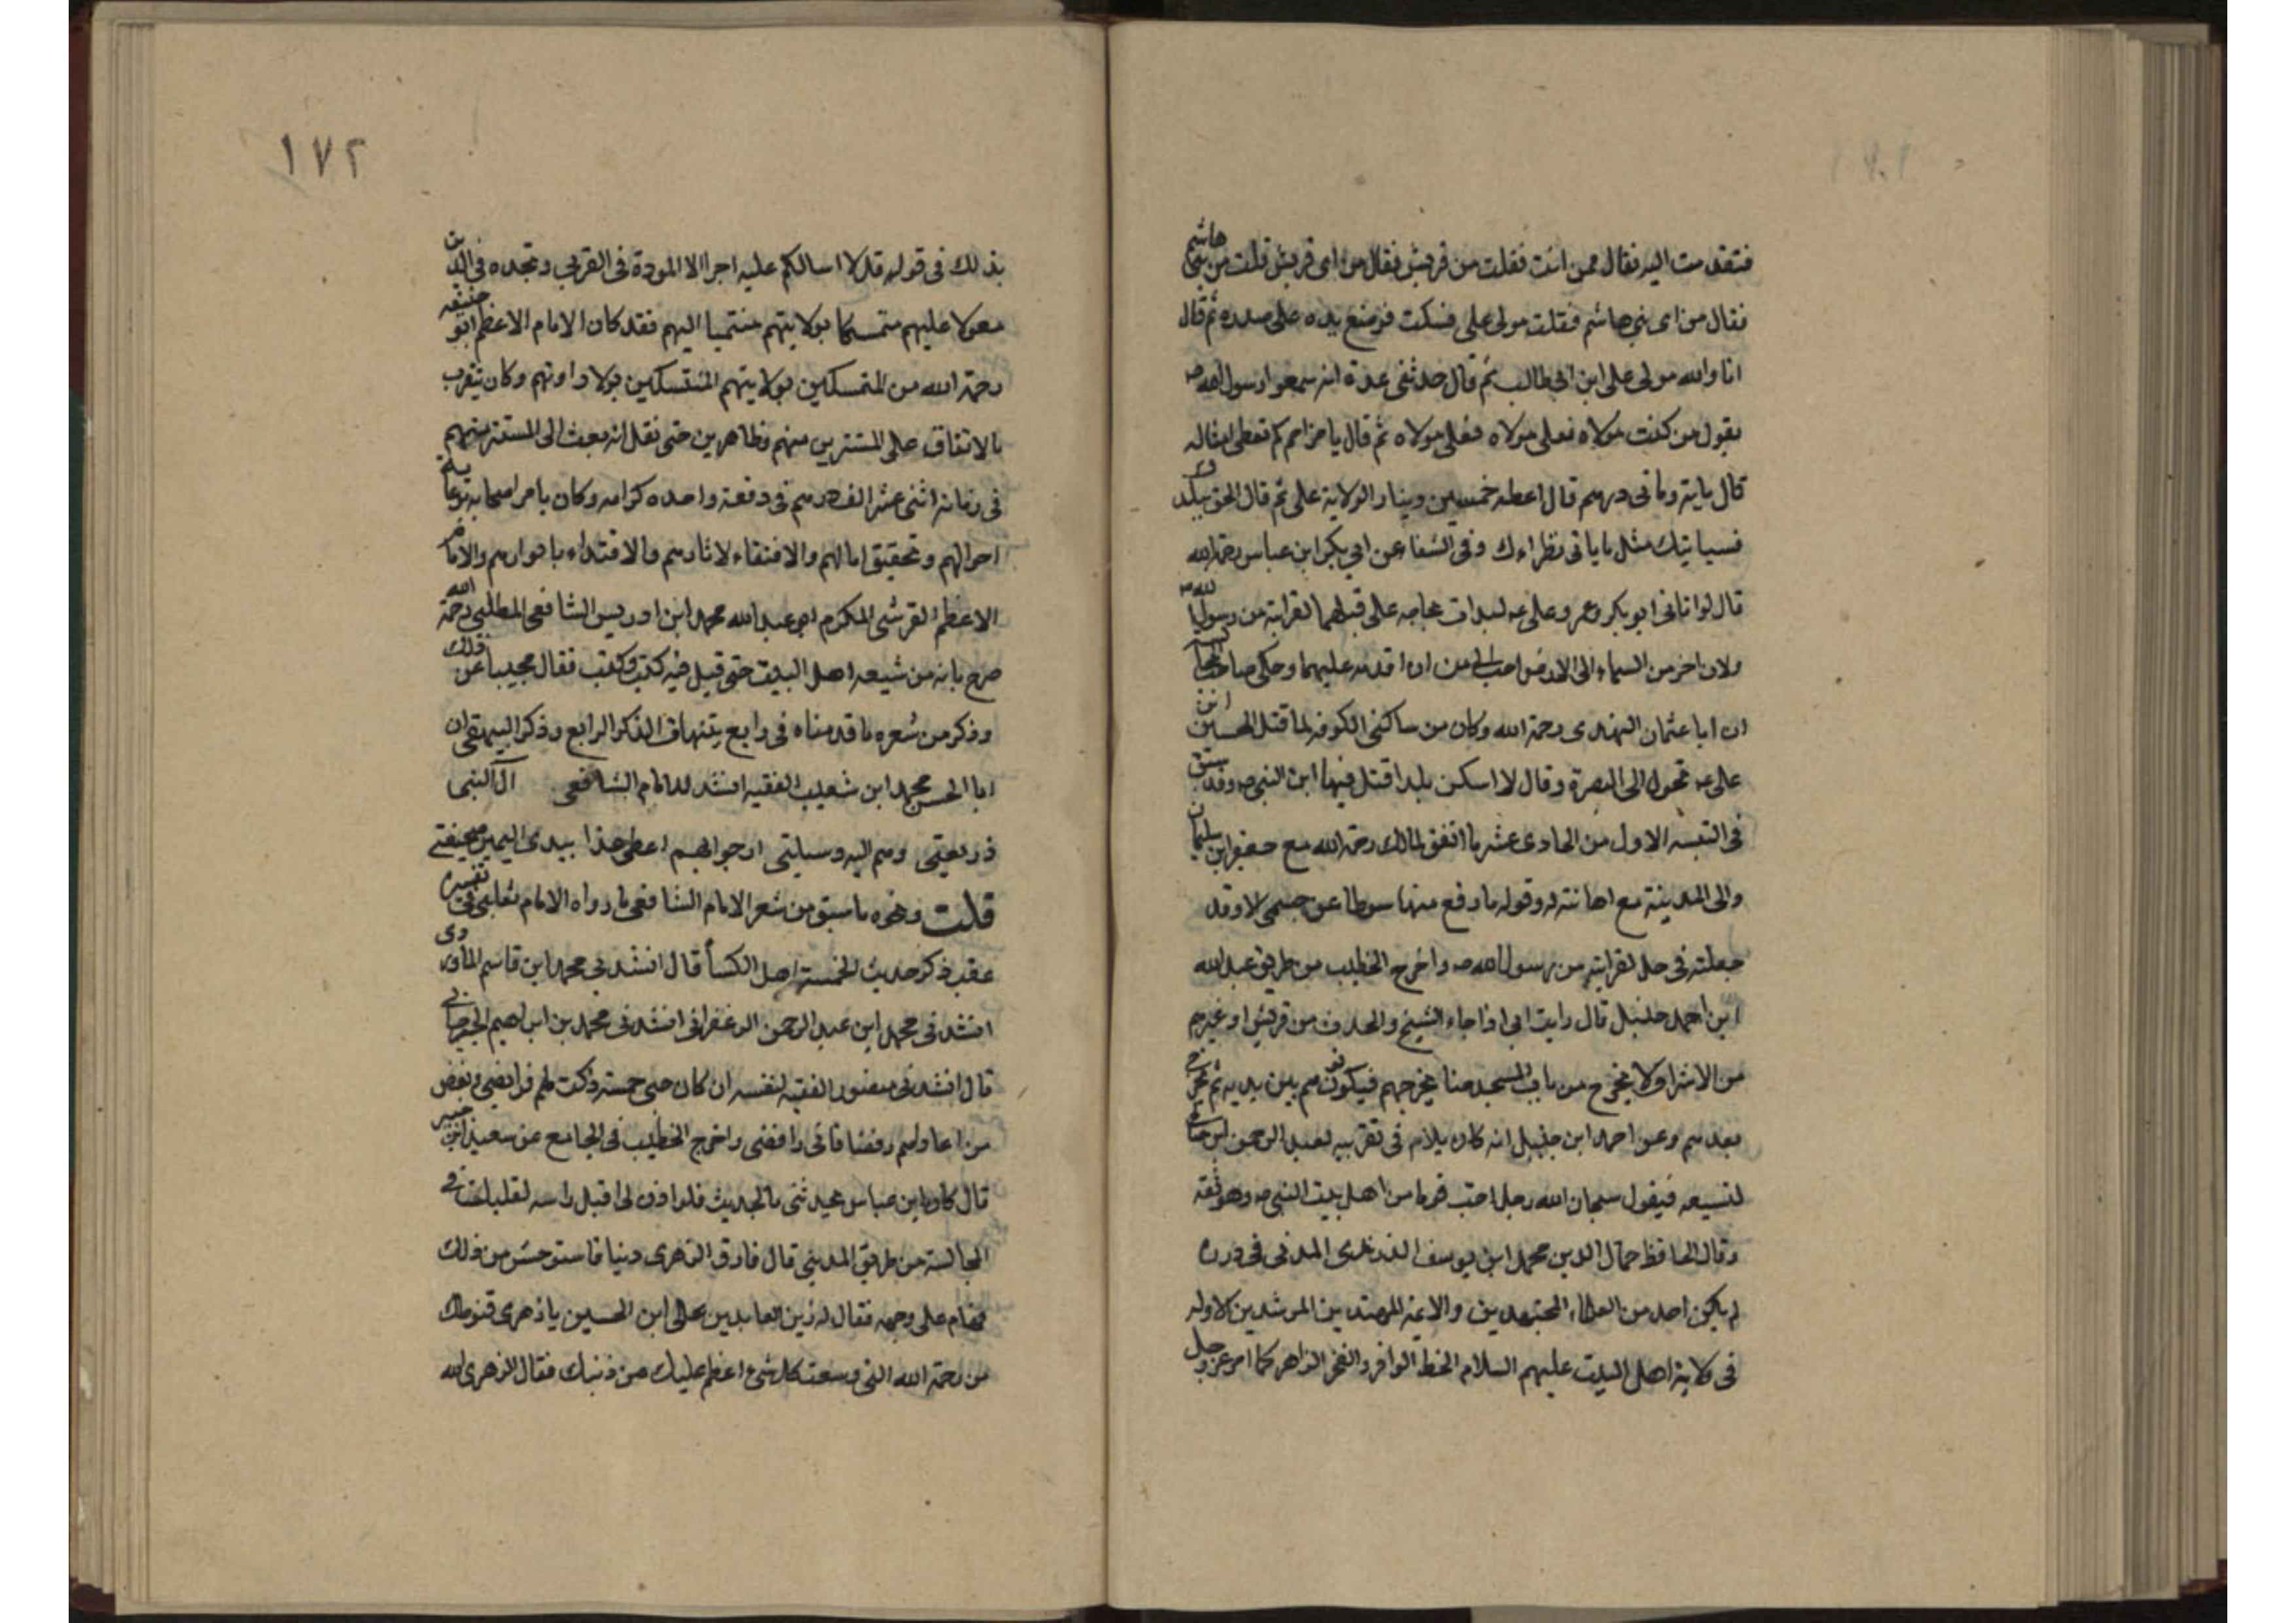 فتقدمت اليه فقال ممن انت فقلت من قريش فقال من اى قريش قلت من بنى هاشم
فقال من اى بنى هاشم فقلت مولى على فسكت فوضع يده على صدره ثم قال
انا والله مولى على ابن ابى طالب ثم قال حدثنى عدة انهم سمعوا رسول الله ص
يقول من كنت مولاه فعلى مولاه فعلى مولاه ثم قال يا مزاحم كم تعطى امثاله
قال ماية ومأتى درهم قال اعطه خمسين دينارا لولاية على ثم قال الحق ببلدك
فسياتيك مثل ما ياتى نظراءك وفى الشفاء عن ابي بكر ابن عباس رحمة الله
قال لو اتانى ابو بكر وعمر وعلى ع لبدات بحاجه على قبلهما لقرابته من رسول الله ص
ولان اخر من السماء الى الارض احب الى من ان اقدمه عليهما وحكى صاحب
ان ابا عثمان النهدى رحمة الله وكان من ساكنى الكوفه لما قتل الحسين ابن
على ع تحول الى البصرة وقال لا اسكن بلدا قتل فيها ابن النبى ص وقد سبق
فى التنبيه الاول من الحادى عشر ما اتفق لمالك رحمة الله مع جعفر ابن سليمان
والى المدينة مع اهانته له وقوله ما رفع منها سوطا عن جسمى الا وقد
جعلته فى حل لقرابته من رسول الله ص واخرج الخطيب من طريق عبد الله
ابن احمد حنبل قال رايت ابى اذا جاء الشيخ والحدث من قريش او غيرهم
من الاشراف لا يخرج من باب المسجد حتا يخرجهم فيكونون هم بين يديه ثم يخرج
بعدهم وعن احمد ابن حنبل انه كان يلام فى تقريبه لعبد الرحمن ابن صالح
لتشيعه فيقول سبحان الله رجل احب قوما من اهل بيت النبى ص وهو ثقة
وقال الحافظ جمال الدين محمد ابن يوسف الزرندى المدنى فى درره
لم يكن احد من العلماء المجتهدين والائمة المهتدين المرشدين الا وله
فى ولاية اهل البيت عليهم السلام الحظ الوافر والفخر الزاهر كما امر عز وجل
١٧٢
بذلك فى قوله قل لا اسالكم عليه اجرا الا المودة فى القربى وتجده فى الدين
معولا عليهم متمسكا بولايتهم منتميا اليهم فقد كان الامام الاعظم ابو حنيفه
رحمة الله من المتمسكين بولايتهم المتنسكين بولاد اوتهم وكان يتقرب
بالانفاق على المستترين منهم وظاهرين حتى نقل انه بعث الى المستتر منهم
فى زمانه اثنى عشر الف درهم فى دفعة واحده كرامه وكان يامر اصحابه برعاية
احوالهم وتحقيق امالهم والاقتفاء لاثارهم والاقتداء بانوارهم والامام
الاعظم القرشى المكرم ابو عبد الله محمد ابن ادريس الشافعى المطلبى رحمة الله
صرح بانه من شيعه اهل البيت حتى قيل فيه كيت وكيت فقال مجيبا عن ذلك
وذكر من شعره ما قدمناه فى رابع تنبيهات الذكر الرابع وذكر البيهقى ان
ابا الحسن محمد ابن شعيب الفقيه انشد للامام الشافعى آل النبى
ذريعتى وهم اليه وسيلتى ارجوا بهم اعطى غدا بيدى اليمين صحيفتى
قلت ونحوه ما سبق من شعر الامام الشافعى ما رواه الامام ثعلبى فى تفسيره
عقب ذكر حديث الخمسة اهل الكسأ قال انشدنى محمد ابن قاسم الماوردى
انشدنى محمد ابن عبد الرحمن الزعفرانى انشدنى محمد بن ابراهيم الجرجانى
قال انشدنى منصور الفقيه لنفسه ان كان حبى خمسة زكت لهم فرائضى وبغض
من اعاداهم رفضا فانى رافضى واخرج الخطيب فى الجامع عن سعيد ابن جبير
قال كان ابن عباس يحدثنى بالحديث فلو اذن لى اقبل راسه لقبلت فى
المجالسة من طريق المدينى قال قارف الزهرى دنيا فاستوحش من ذلك
فهام على وجهه فقال له زين العابدين على ابن الحسين يا زهرى قنوطك
من رحمة الله التى وسعت كل شئ اعظم عليك من ذنبك فقال الزهرى الله